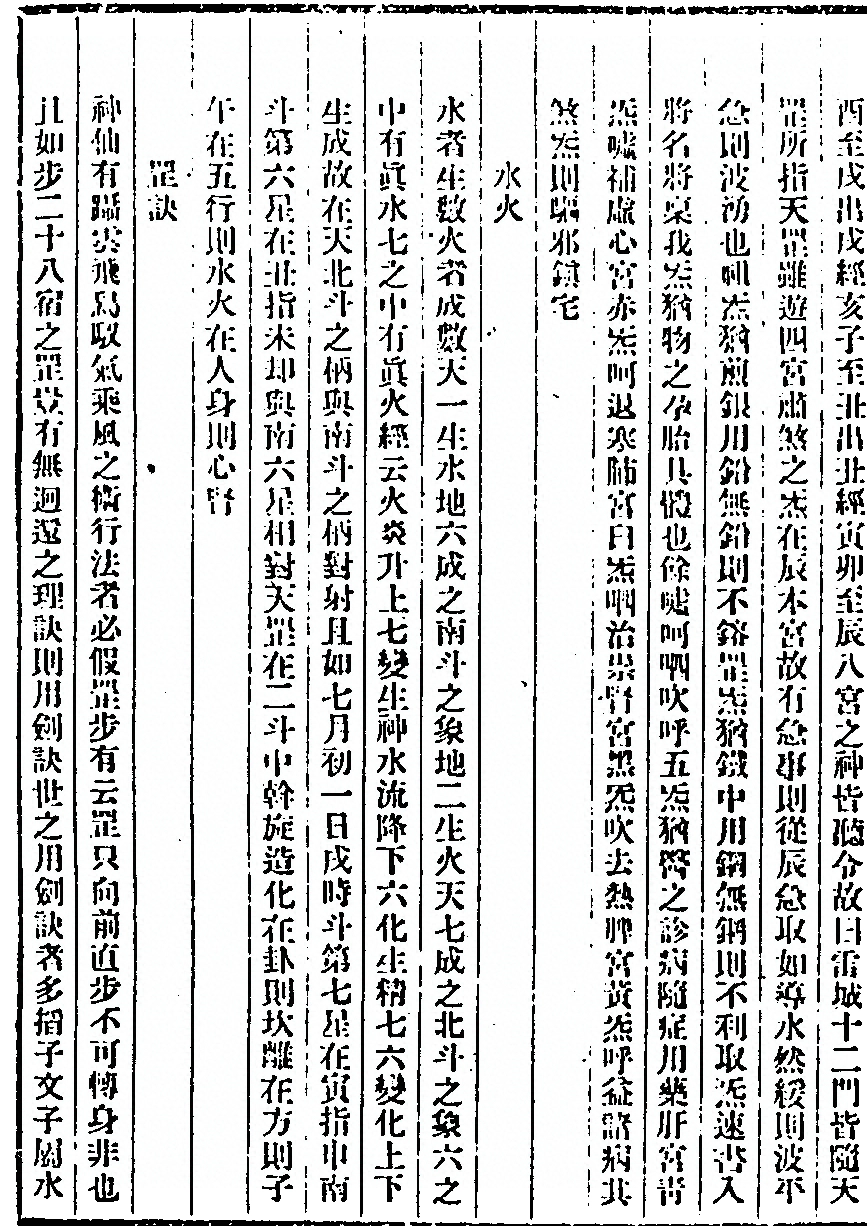 酉至戌出戌經亥子至丑出丑經寅卯至辰八宮之神皆聽令故曰雷城十二門皆隨天
罡所指天罡雖遊四宮肅煞之炁在辰本宮故有急事則從辰急取如導水然緩則波平
急則波湧也呬炁猶煎銀用鉛無鉛則不鎔罡炁猶鐵中用鋼無鋼則不利取炁速書入
將名將稟我炁猶物之孕胎具體也餘噓呵呬吹呼五炁猶醫之診病隨症用藥肝宮青
炁噓補虛心宮赤炁呵退寒肺宮白炁呬治祟腎宮黑炁吹去熱脾宮黃炁呼益諸病其
煞炁則驅邪鎮宅
水火
水者生數火者成數天一生水地六成之南斗之象地二生火天七成之北斗之象六之
中有眞水七之中有眞火經云火炎升上七變生神水流降下六化生精七六變化上下
生成故在天北斗之柄與南斗之柄對射且如七月初一日戌時斗第七星在寅指申南
斗第六星在丑指未却與南六星相對天罡在二斗中斡旋造化在卦則坎離在方則子
午在五行則水火在人身則心腎
罡訣
神仙有躡雲飛舄馭氣乘風之術行法者必假罡步有云罡只向前直步不可轉身非也
且如步二十八宿之罡豈有無迴還之理訣則用劍訣世之用劍訣者多掐子文子屬水